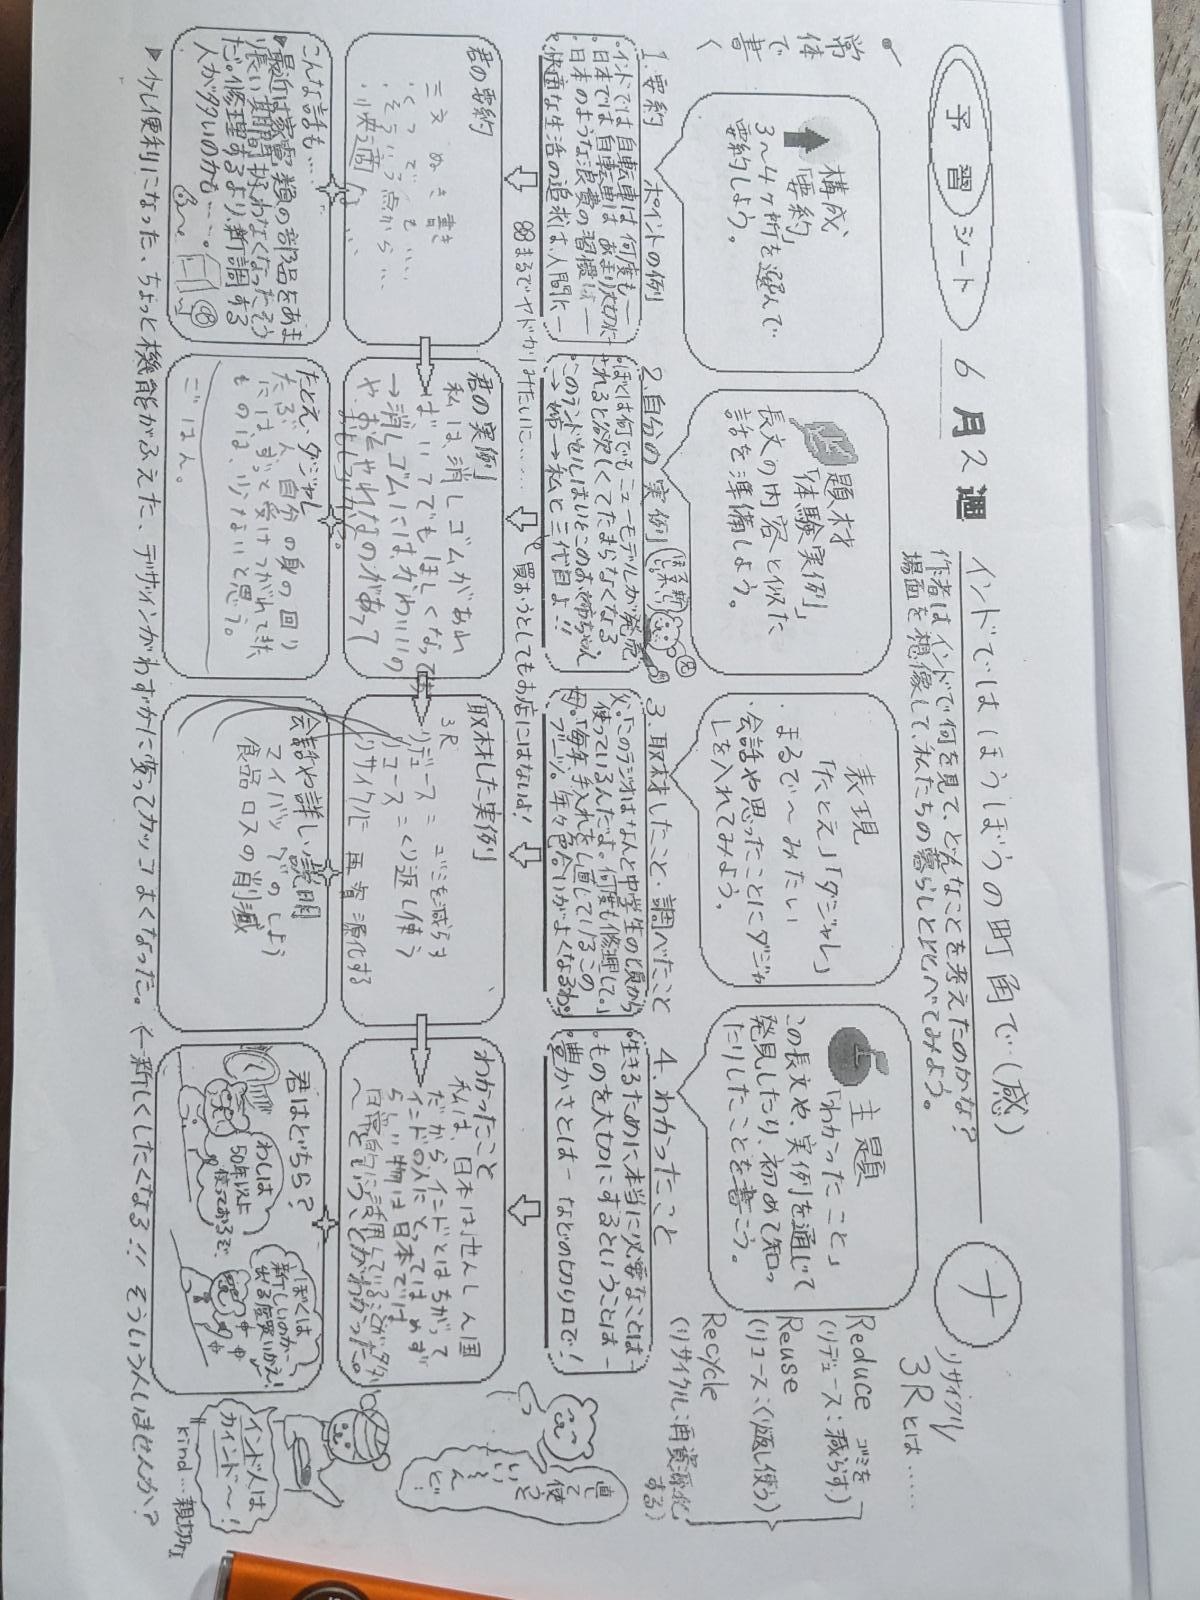 予習シート
6月2週
インドではほうぼうの町角で(感)
ナ
作者はインドで何を見て、どんなことを考えたのかな?
場面を想像して、私たちの暮らしと比べてみよう。
リサイクル
3Rとは……
Reduce ゴミを
(リデュース:減らす)
Reuse
(リユース:くり返し使う)
Recycle
(リサイクル:再資源化
する)
常体で書く
構成
「要約」
3〜4ヶ所を選んで
要約しよう。
題材
「体験実例」
長文の内容と似た
話を準備しよう。
表現
「たとえ」「ダジャレ」
・まるで〜みたい
・会話や思ったことにダジャ
レを入れてみよう。
主題
「わかったこと」
この長文や、実例を通じて
発見したり、初めて知っ
たりしたことを書こう。
1.要約 ポイントの例
・インドでは自転車は何度も—
・日本では自転車はあまり大切に—
・日本のような浪費の習慣は—
・快適な生活の追求は、人間に—
2.自分の実例
・ぼくは何でもニューモデルが発売
されると欲しくてたまらなくなる
・このランドセルはいとこのお姉ちゃん
→姉→私と三代目よ!!
3.取材したこと・調べたこと
父「このラジオはなんと中学生の頃から
使っているんだよ。何度も修理して。」
母「毎年、手入れをし直しているこの
ブーツ。年々色合いがよくなるわ。」
4.わかったこと
・生きるために本当に必要なことは—
・ものを大切にするということは—
・豊かさとは— などの切り口で!
まるでヤドカリみたいに……
買おうとしてもお店にはないよ!
君の要約
二文ぬき書き
・くつでも……
・そういう点から…
・快適な…
君の実例
私は、消しゴムがあれ
ばいいてでもほしくなって
→消しゴムにはかわいいの
や、おしゃれなのがあって
取材した実例
3R
リデュース=ゴミを減らす
リユース=くり返し使う
リサイクル=再資源化する
わかったこと
私は、日本はせんしん国
だからインドとはちがって
インドの人にとってはめず
らしい物は日本では
日常的に活用していることが多
いということがわかった。
直して使っといてんど!
こんな話も…
▶最近は家電類の部品をあま
り長い期間扱わなくなったそう
だ。修理するより、新調する
人が多いのかも……。
たとえ、ダジャレ
たぶん、自分の身の回り
には、ずっと受けつがれてきた
ものは、少ないと思う。
ごはん。
会話や詳しい説明
マイバッグのしよう
食品ロスの削減
君はどちら?
わしは
50年以上
使っておるぞ
ぼくは
新しいのが
出る度買いかえ!
インド人は
カインド〜!
kind…親切な
▶少し便利になった、ちょっと機能がふえた、デザインがわずかに変ってカッコよくなった。←新しくしたくなる!!そういう人いませんか?